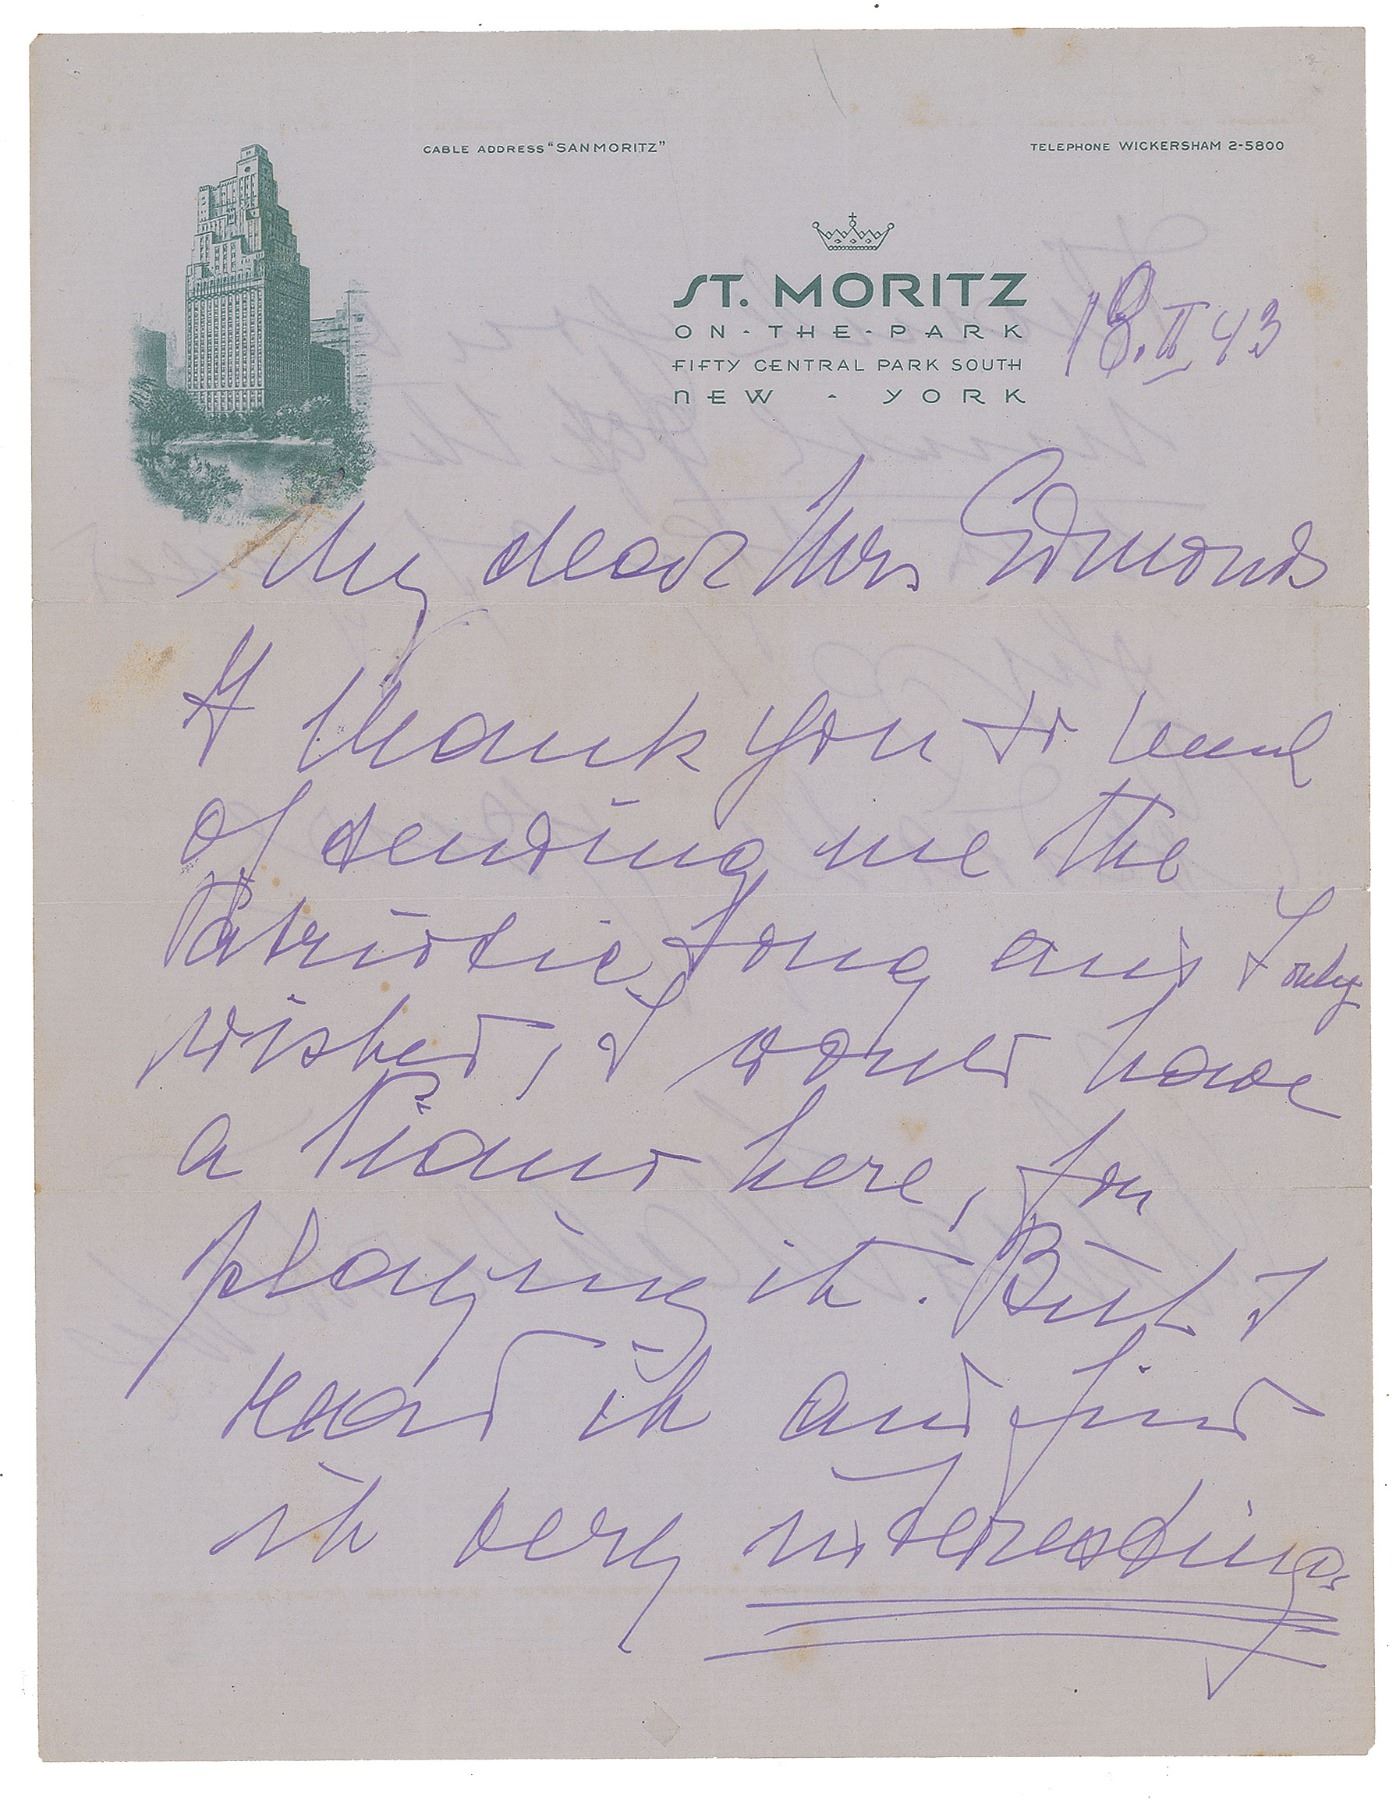 CABLE ADDRESS "SANMORITZ"
TELEPHONE WICKERSHAM 2-5800
ST. MORITZ
ON-THE-PARK
FIFTY CENTRAL PARK SOUTH
NEW - YORK
18.II 43
My dear Mrs. Edmonds
I thank you so much
of sending me the
Patriotic Song and I only
wished, I would have
a Piano here, for
playing it. But I
read it and find
it very interesting.